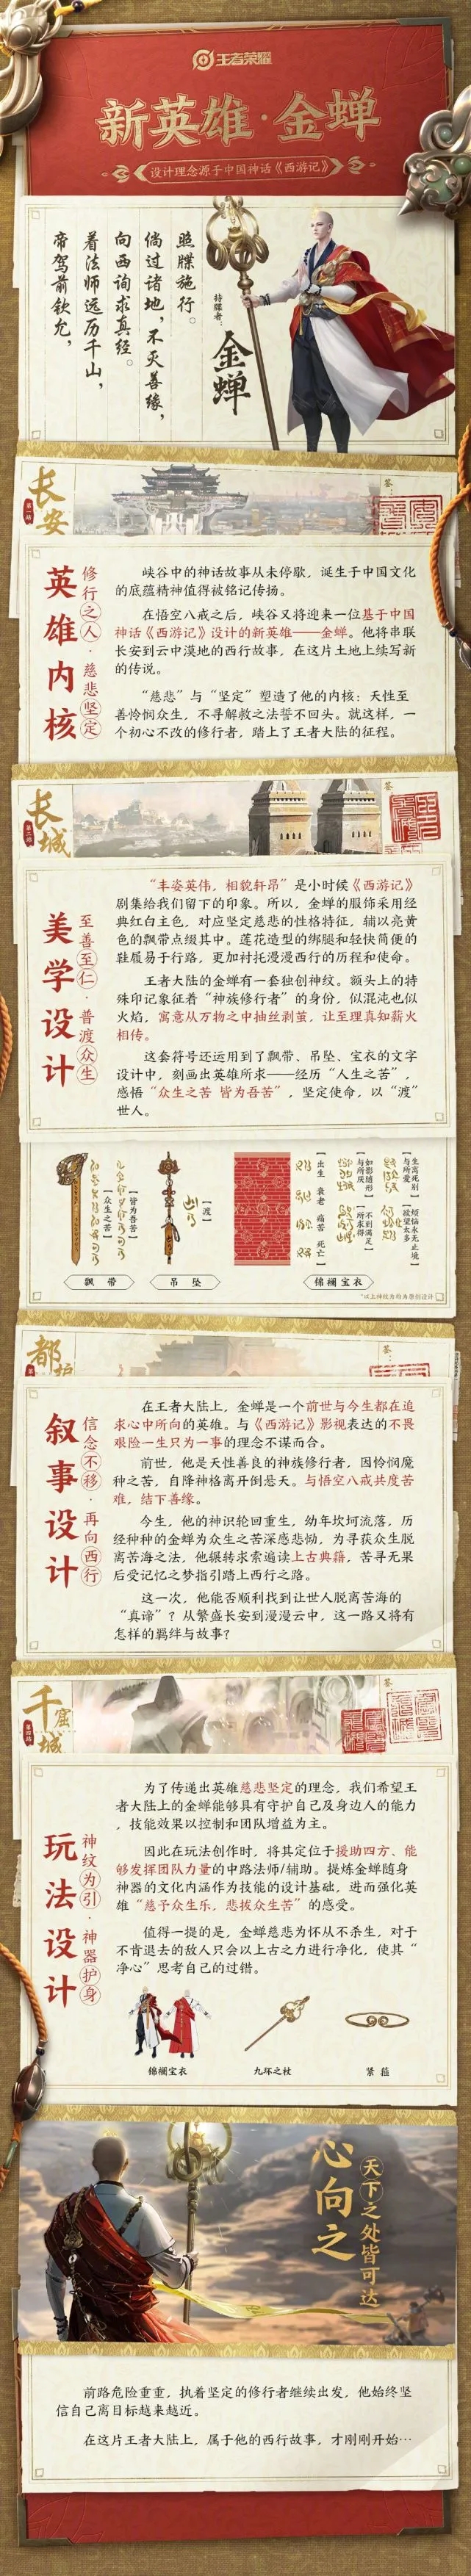 王者荣耀
新英雄·金蝉
设计理念源于中国神话《西游记》
帝驾前钦允，
着法师远历千山，
向西询求真经。
倘过诸地，不灭善缘，
照牒施行。
持牒者：
金蝉
长安
第一站
签：
英雄内核
修行之人·慈悲坚定
峡谷中的神话故事从未停歇，诞生于中国文化
的底蕴精神值得被铭记传扬。
在悟空八戒之后，峡谷又将迎来一位基于中国
神话《西游记》设计的新英雄——金蝉。他将串联
长安到云中漠地的西行故事，在这片土地上续写新
的传说。
“慈悲”与“坚定”塑造了他的内核：天性至
善怜悯众生，不寻解救之法誓不回头。就这样，一
个初心不改的修行者，踏上了王者大陆的征程。
长城
第二站
签：
美学设计
至善至仁·普渡众生
“丰姿英伟，相貌轩昂”是小时候《西游记》
剧集给我们留下的印象。所以，金蝉的服饰采用经
典红白主色，对应坚定慈悲的性格特征，辅以亮黄
色的飘带点缀其中。莲花造型的绑腿和轻快简便的
鞋履易于行路，更加衬托漫漫西行的历程和使命。
王者大陆的金蝉有一套独创神纹。额头上的特
殊印记象征着“神族修行者”的身份，似混沌也似
火焰，寓意从万物之中抽丝剥茧，让至理真知薪火
相传。
这套符号还运用到了飘带、吊坠、宝衣的文字
设计中，刻画出英雄所求——经历“人生之苦”，
感悟“众生之苦 皆为吾苦”，坚定使命，以“渡”
世人。
【众生之苦】
【皆为吾苦】
【渡】
【出生 衰老 痛苦 死亡】
【如影随形】
【与所厌】
【不到满足】
【所求得】
【生离死别】
【与所爱】
【烦恼永无止境】
【欲望太多】
飘带
吊坠
锦襕宝衣
*以上神纹为均为原创设计
都护
签：
叙事设计
信念不移·再向西行
在王者大陆上，金蝉是一个前世与今生都在追
求心中所向的英雄。与《西游记》影视表达的不畏
艰险一生只为一事的理念不谋而合。
前世，他是天性善良的神族修行者，因怜悯魔
种之苦，自降神格离开倒悬天。与悟空八戒共度苦
难，结下善缘。
今生，他的神识轮回重生，幼年坎坷流落，历
经种种的金蝉为众生之苦深感悲恸，为寻获众生脱
离苦海之法，他辗转求索遍读上古典籍，苦寻无果
后受记忆之梦指引踏上西行之路。
这一次，他能否顺利找到让世人脱离苦海的
“真谛”？从繁盛长安到漫漫云中，这一路又将有
怎样的羁绊与故事？
千窟城
第四站
签：
玩法设计
神纹为引·神器护身
为了传递出英雄慈悲坚定的理念，我们希望王
者大陆上的金蝉能够具有守护自己及身边人的能力
，技能效果以控制和团队增益为主。
因此在玩法创作时，将其定位于援助四方、能
够发挥团队力量的中路法师/辅助。提炼金蝉随身
神器的文化内涵作为技能的设计基础，进而强化英
雄“慈予众生乐，悲拔众生苦”的感受。
值得一提的是，金蝉慈悲为怀从不杀生，对于
不肯退去的敌人只会以上古之力进行净化，使其“
净心”思考自己的过错。
锦襕宝衣
九环之杖
紧箍
心向之
天下之处皆可达
前路危险重重，执着坚定的修行者继续出发，他始终坚
信自己离目标越来越近。
在这片王者大陆上，属于他的西行故事，才刚刚开始…